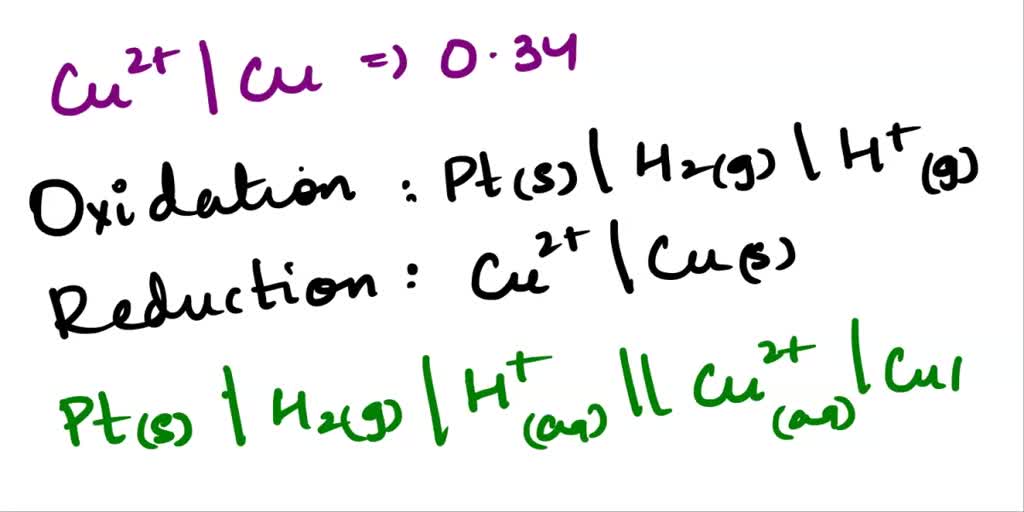 Cu²⁺ | Cu => 0.34
Oxidation : Pt(s) | H₂(g) | H⁺(g)
Reduction : Cu²⁺ | Cu(s)
Pt(s) | H₂(g) | H⁺(aq) || Cu²⁺(aq) | Cu |